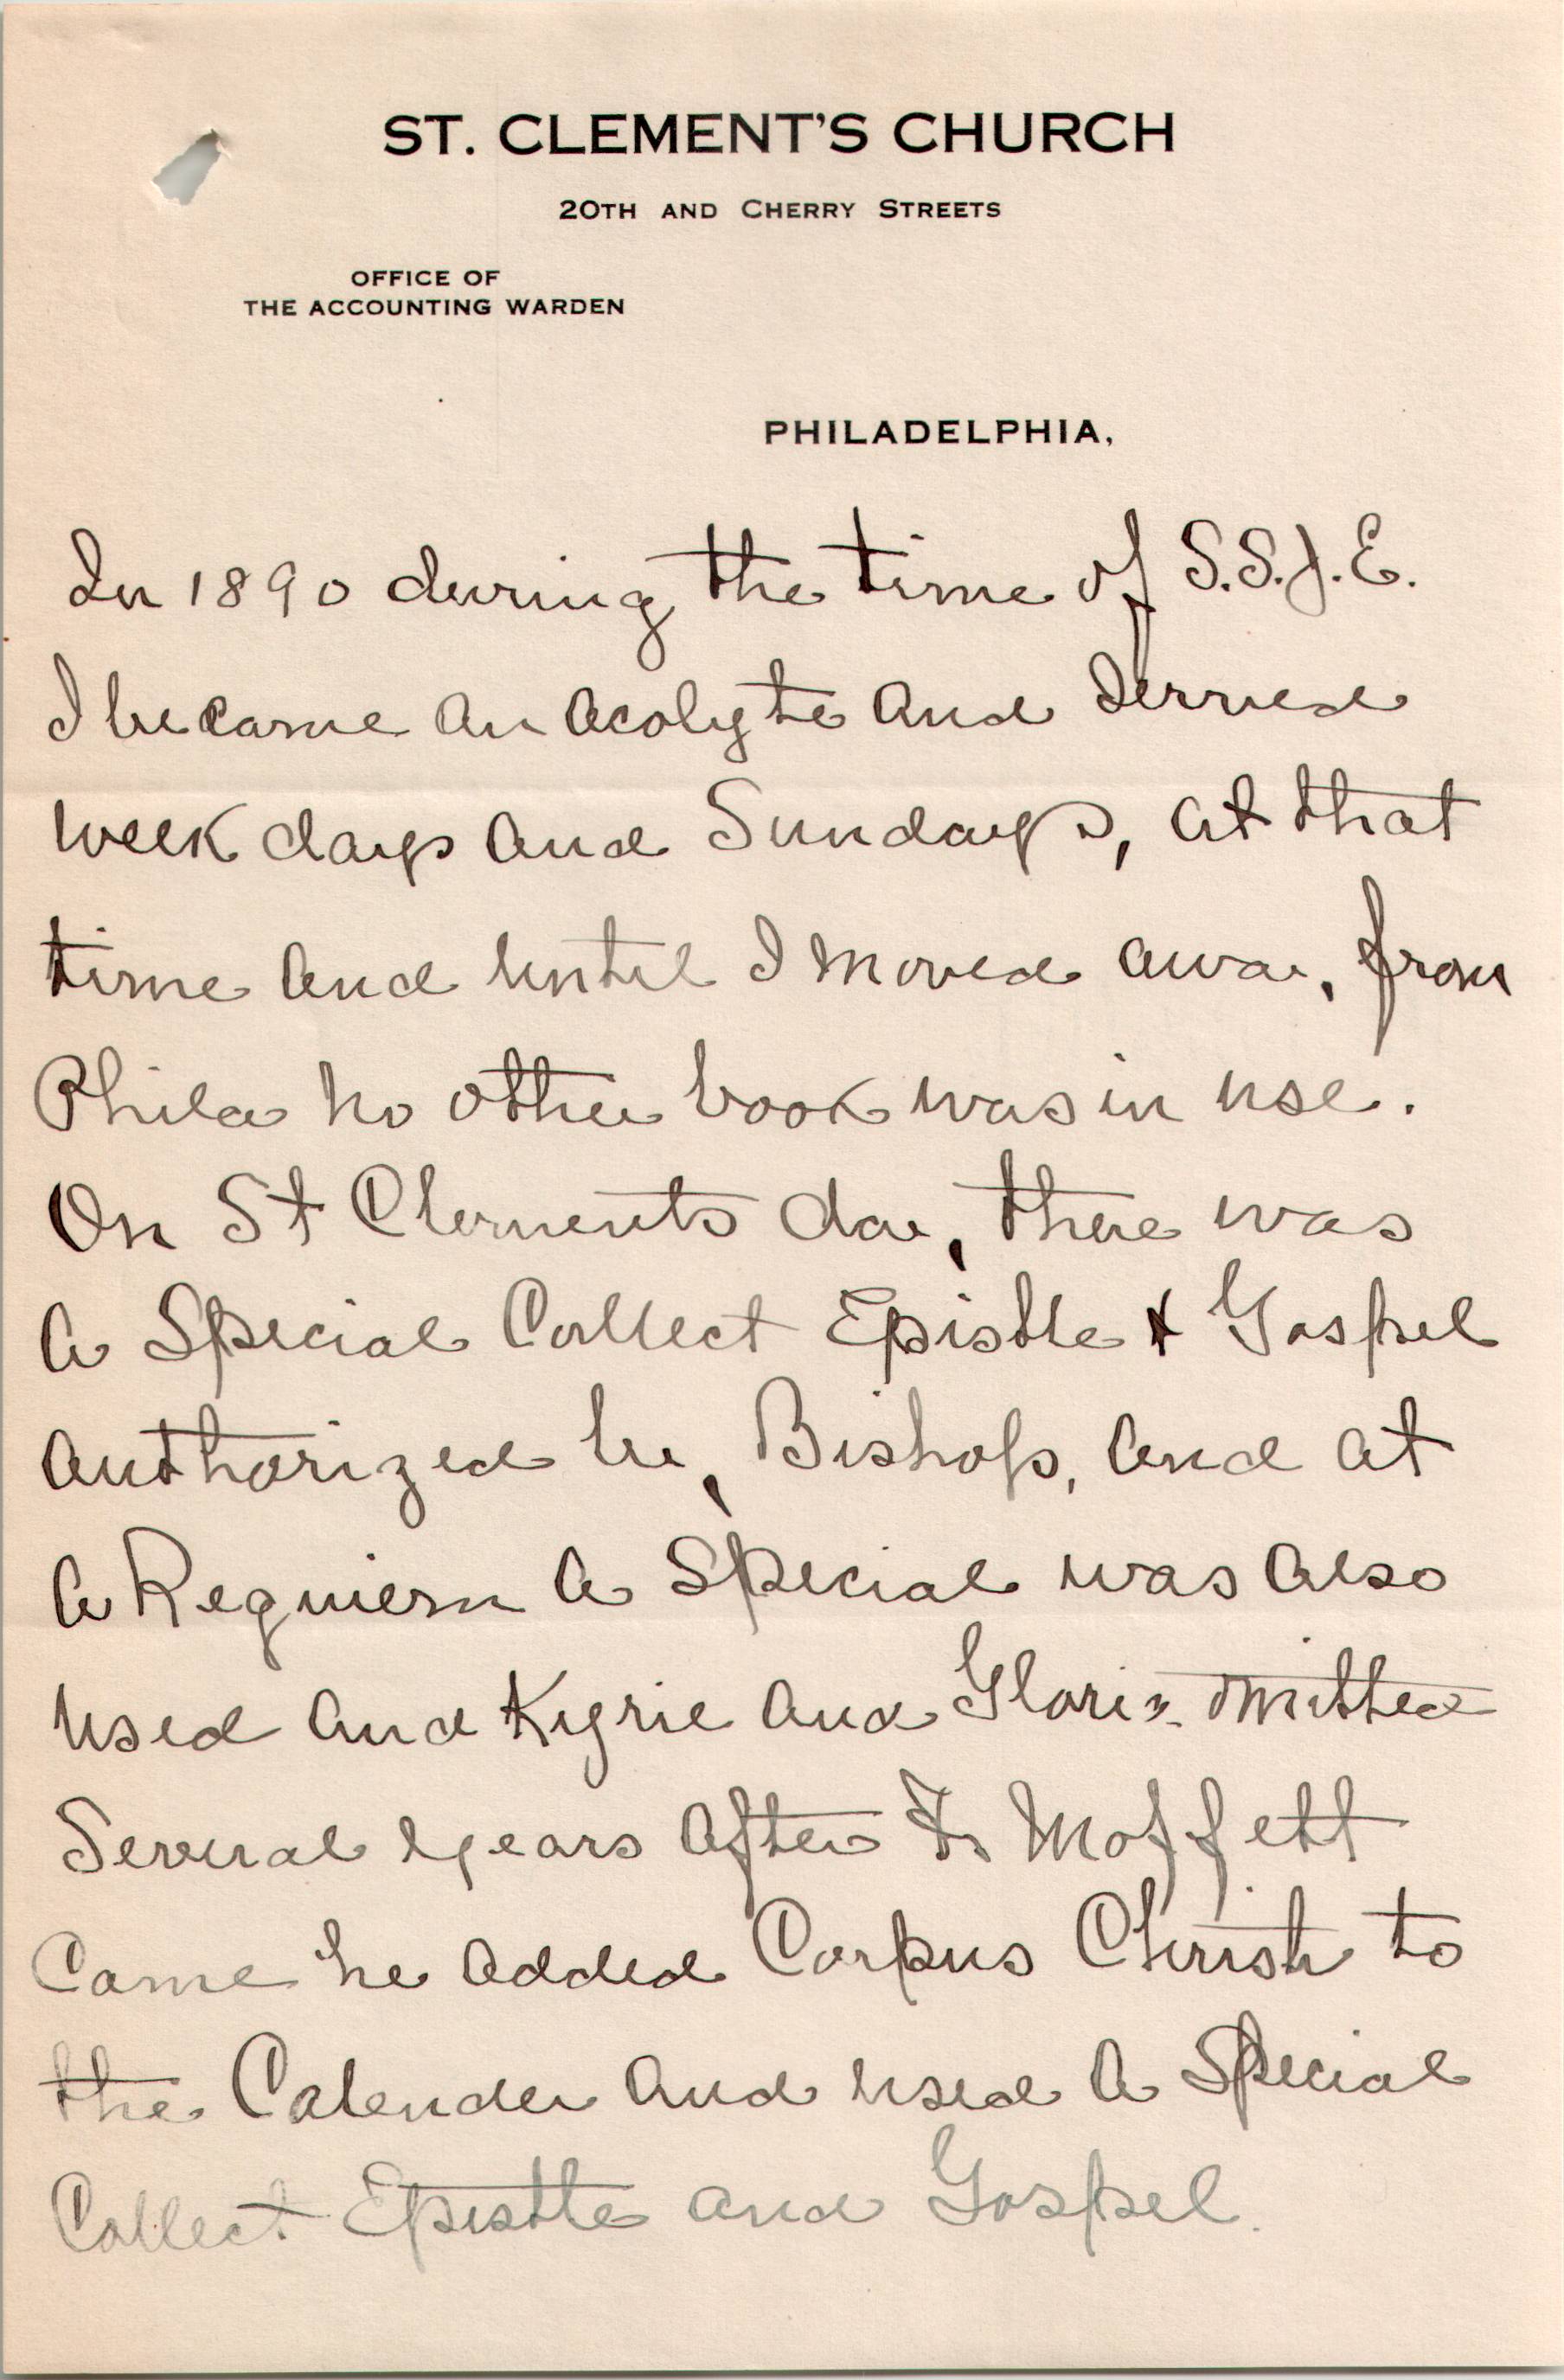 ST. CLEMENT'S CHURCH
20TH AND CHERRY STREETS
OFFICE OF
THE ACCOUNTING WARDEN
PHILADELPHIA,
In 1890 during the time of S.S.J.E.
I became an acolyte and served
week days and Sundays, at that
time and until I moved away from
Phila no other book was in use.
On St Clements day there was
a Special Collect Epistle & Gospel
authorized by Bishop, and at
a Requiem a Special was also
used and Kyrie and Gloria omitted
Several years after Fr Moffett
came he added Corpus Christi to
the Calender and used a Special
Collect Epistle and Gospel.